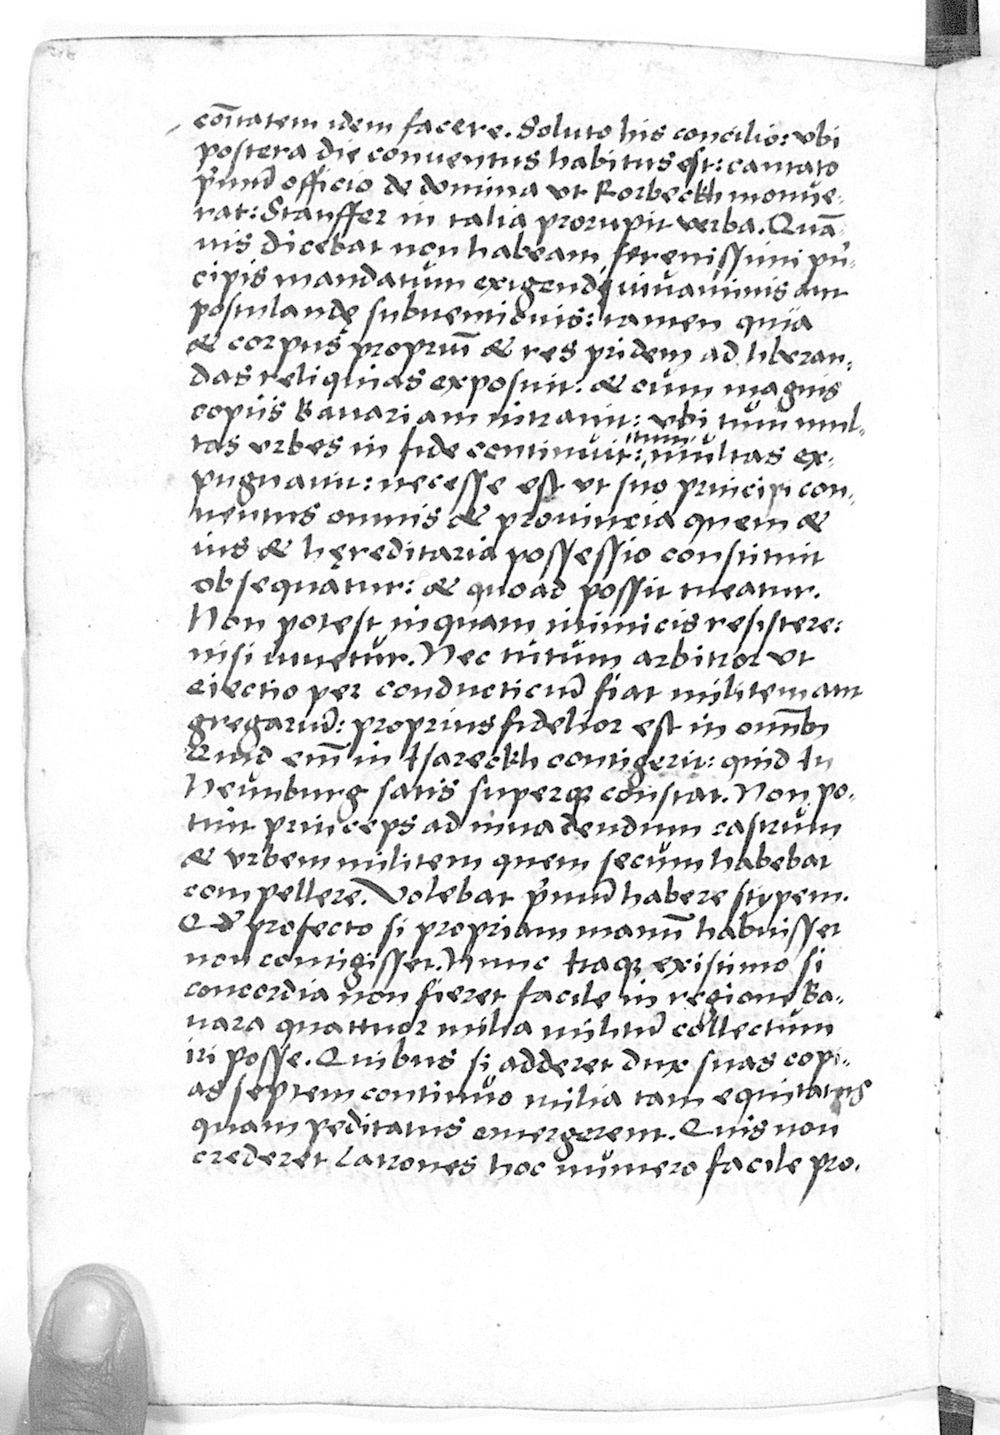 com̄tatem idem facere. Soluto his concilio: vbi
postera die conuentus habitus est: cantato
p̃mũ officio de domina vt Rorbeckh monue-
rat: Stauffer in talia prorupit verba. Quã-
uis dicebat non habeam serenissimi pñ-
cipis mandatum exigendę iuuaminis aut
postulandę subuentionis: tamen quia
& corpus propriũ & res pridem ad liberan-
das reliquias exposuit: & cum magnis
copiis Bauariam intrauit: vbi tum mul-
tas vrbes in fide continuit: tum multas ex-
pugnauit: necesse est vt suo principi con-
uentus omnis & prouincia quem &
ius & hęreditaria possessio constituit
obsequatur: & quoad possit tueatur.
Non potest inquam inimicis resistere:
nisi iuuetur. Nec tutum arbitror vt
eiectio per conducticiũ fiat militem aut
gregariũ: proprius fidelior est in omnib;
Quid em̃ in Hareckh contigerit: quid in
Neunburg satis superq; constat. Non po-
tuit princeps ad inuadendum castrum
& vrbem militem quem secum habebat
compellere. Volebat p̃mũ habere stypem.
Qđ profecto si propriam manũ habuisset
non contigisset. Nunc itaq; existimo si
concordia non fieret facile in regione Ba-
uara quattuor milia militũ collectum
iri posse. Quibus si adderet dux suas copi-
as septem continuo milia tam equitatus
quam peditatus emergerent. Quis non
crederet Latrones hoc numero facile pro-